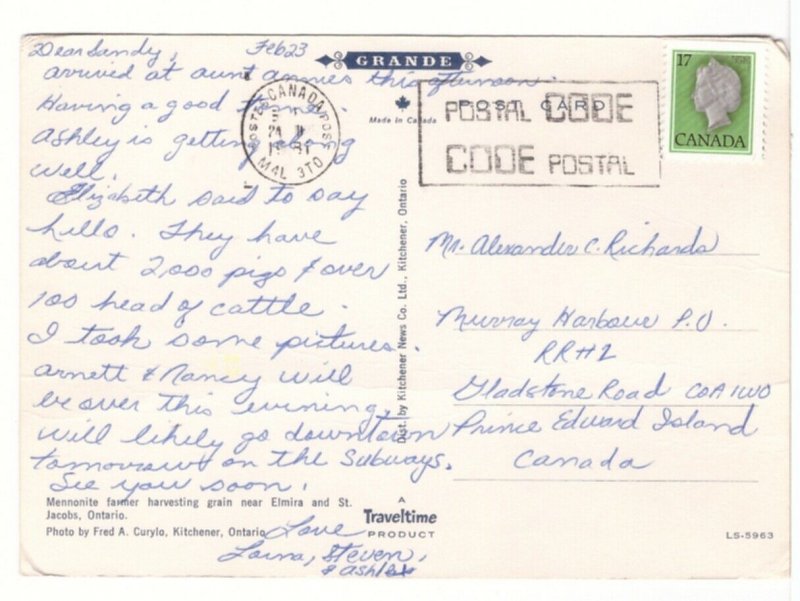 Dear Sandy, Feb 23
arrived at aunt annies this afternoon.
Having a good time.
Ashley is getting along
well.
Elizabeth said to say
hello. They have
about 2,000 pigs & over
100 head of cattle.
I took some pictures.
Arnett & Nancy will
be over this evening,
will likely go downtown
tomorrow on the Subways.
See you soon!
Love
Lorna, Steven,
& Ashley
Mennonite farmer harvesting grain near Elmira and St.
Jacobs, Ontario.
Photo by Fred A. Curylo, Kitchener, Ontario
GRANDE
POST CARD
Made in Canada
CANADA
POSTES POST
24 II
M4L 3T0
POSTAL CODE
CODE POSTAL
17
CANADA
Dist. by Kitchener News Co. Ltd., Kitchener, Ontario
Mr. Alexander C. Richards
Murray Harbour P.O.
RR#2
Gladstone Road C0A 1W0
Prince Edward Island
Canada
A
Traveltime
PRODUCT
LS-5963